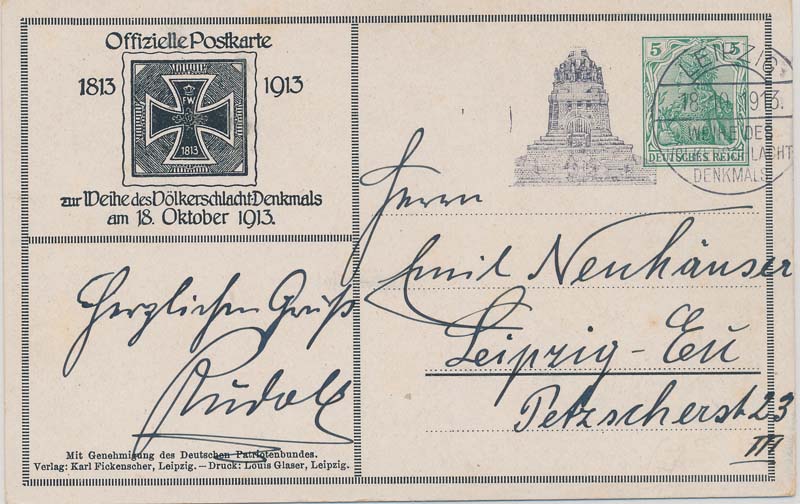 Offizielle Postkarte
1813 1913
FW
1813
zur Weihe des Völkerschlacht-Denkmals
am 18. Oktober 1913.
Herzlichen Gruß
Rudolf
Mit Genehmigung des Deutschen Patriotenbundes.
Verlag: Karl Fickenscher, Leipzig. – Druck: Louis Glaser, Leipzig.
5 5
DEUTSCHES REICH
LEIPZIG
18.10.1913.
WEIHE DES
VÖLKERSCHLACHT
DENKMALS
Herrn
Emil Neuhäuser
Leipzig-Eu
Petzscherst 23
III